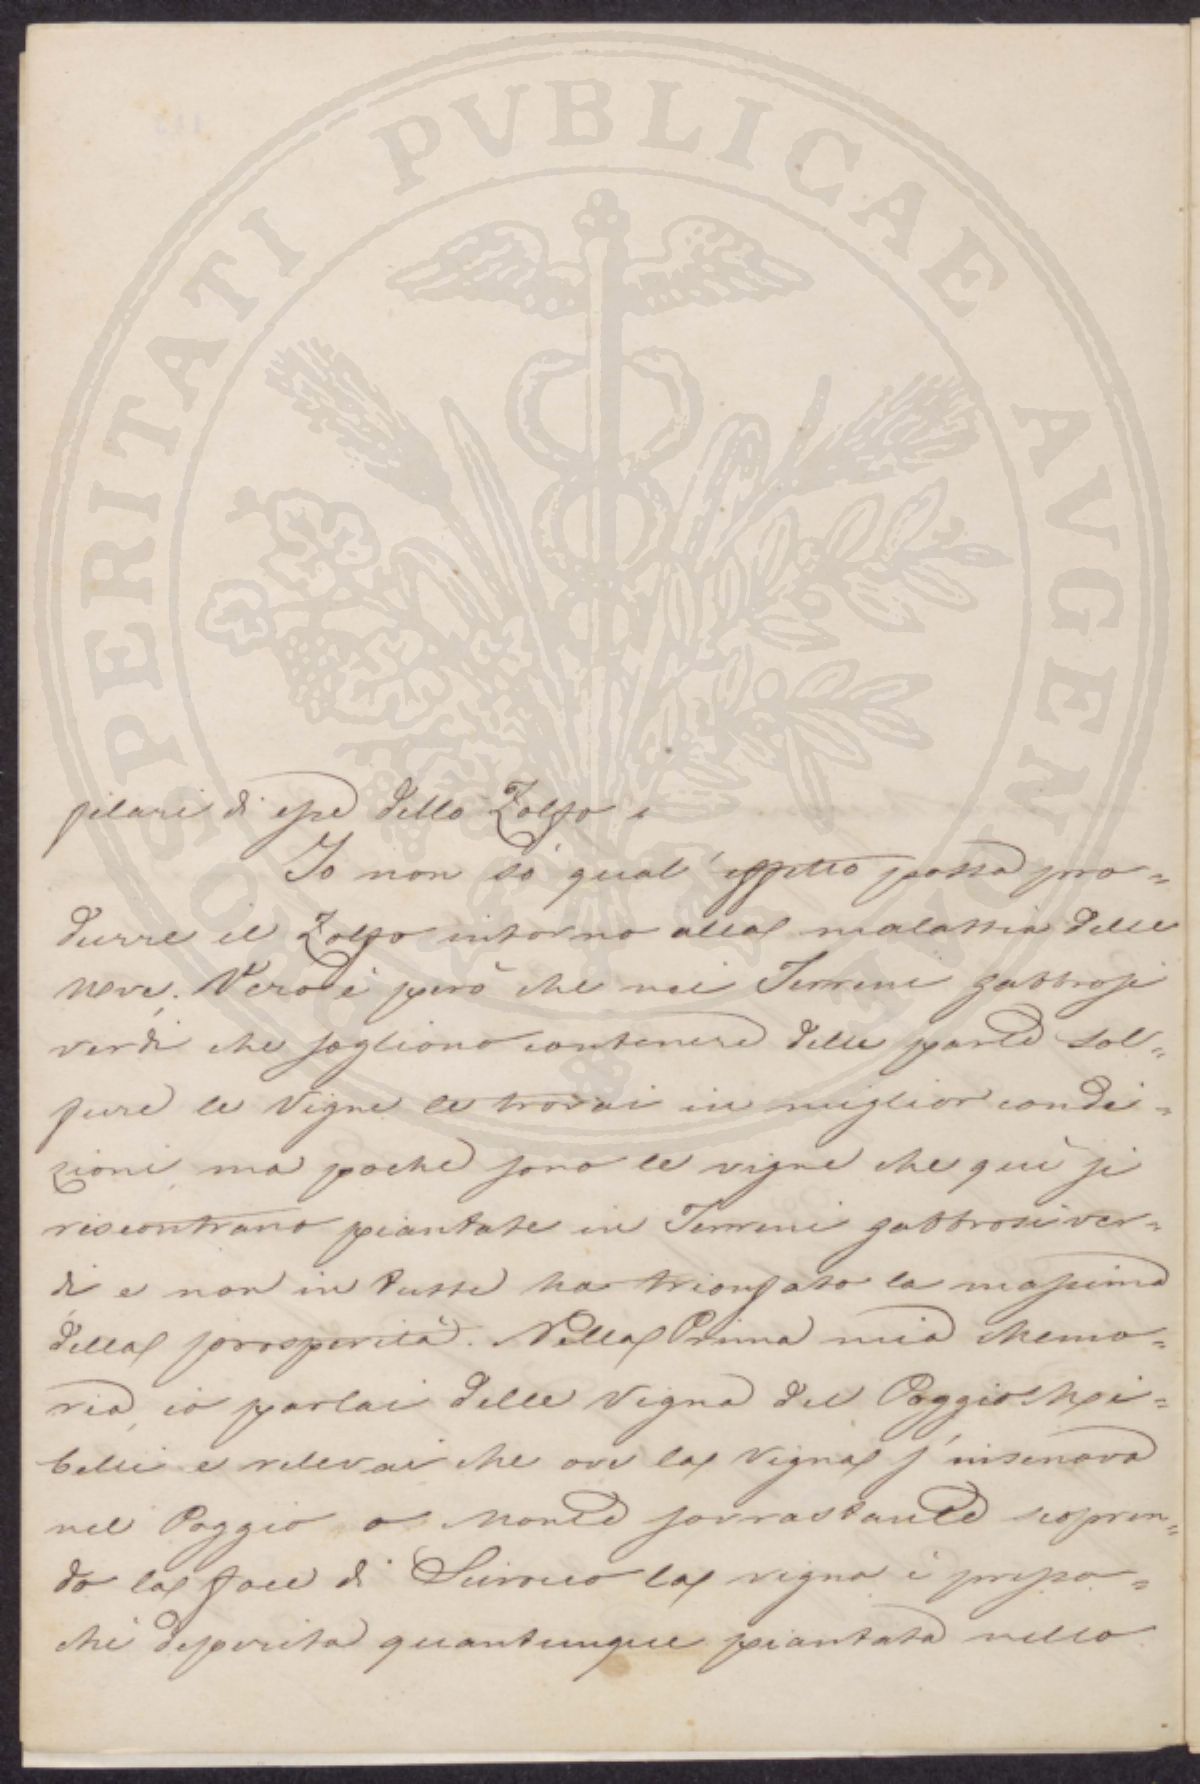 PROSPERITATI PVBLICAE AVGENDAE
pilari di esse dello Zolfo.
Io non sò qual'effetto possa pro=
durre il Zolfo intorno alla malattia delle
Uve. Vero è però che nei Terreni gabbrosi
verdi che sogliono contenere delle parti sol=
furee le Vigne le trovai in miglior condi=
zioni, ma poche sono le vigne che quì si
riscontrano piantate in Terreni gabbrosi ver=
di e non in tutte ha trionfato la massima
della prosperità. Nella Prima mia Memo=
ria, io parlai delle Vigna del Poggio Mei=
belli e rilevai che ove la Vigna s'insenava
nel Poggio o Monte sovrastante scopren=
do la face di la vigna è presso=
chè deperita quantunque piantata nello